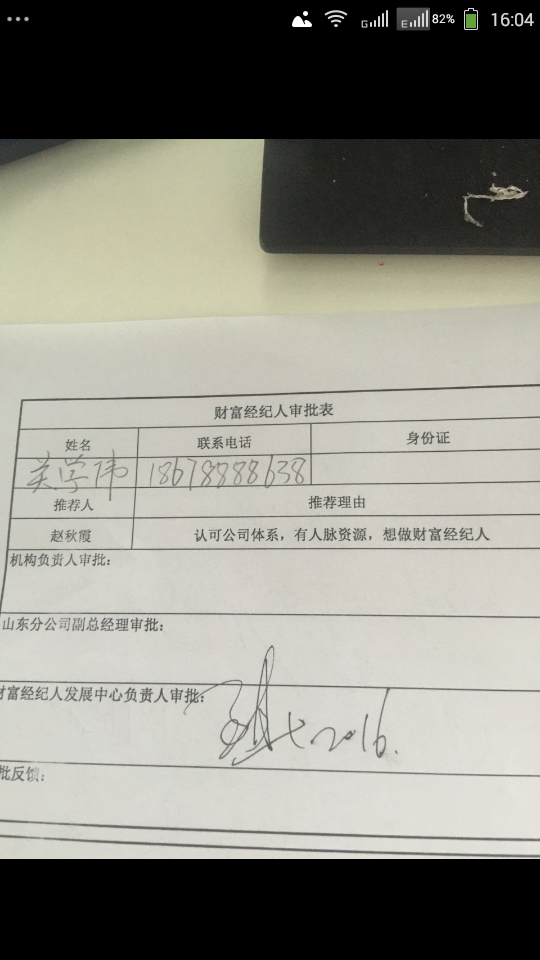 82% 16:04
财富经纪人审批表
姓名 联系电话 身份证
关学伟 18678888638
推荐人 推荐理由
赵秋霞 认可公司体系，有人脉资源，想做财富经纪人
机构负责人审批：
山东分公司副总经理审批：
财富经纪人发展中心负责人审批：
2016.
批反馈：